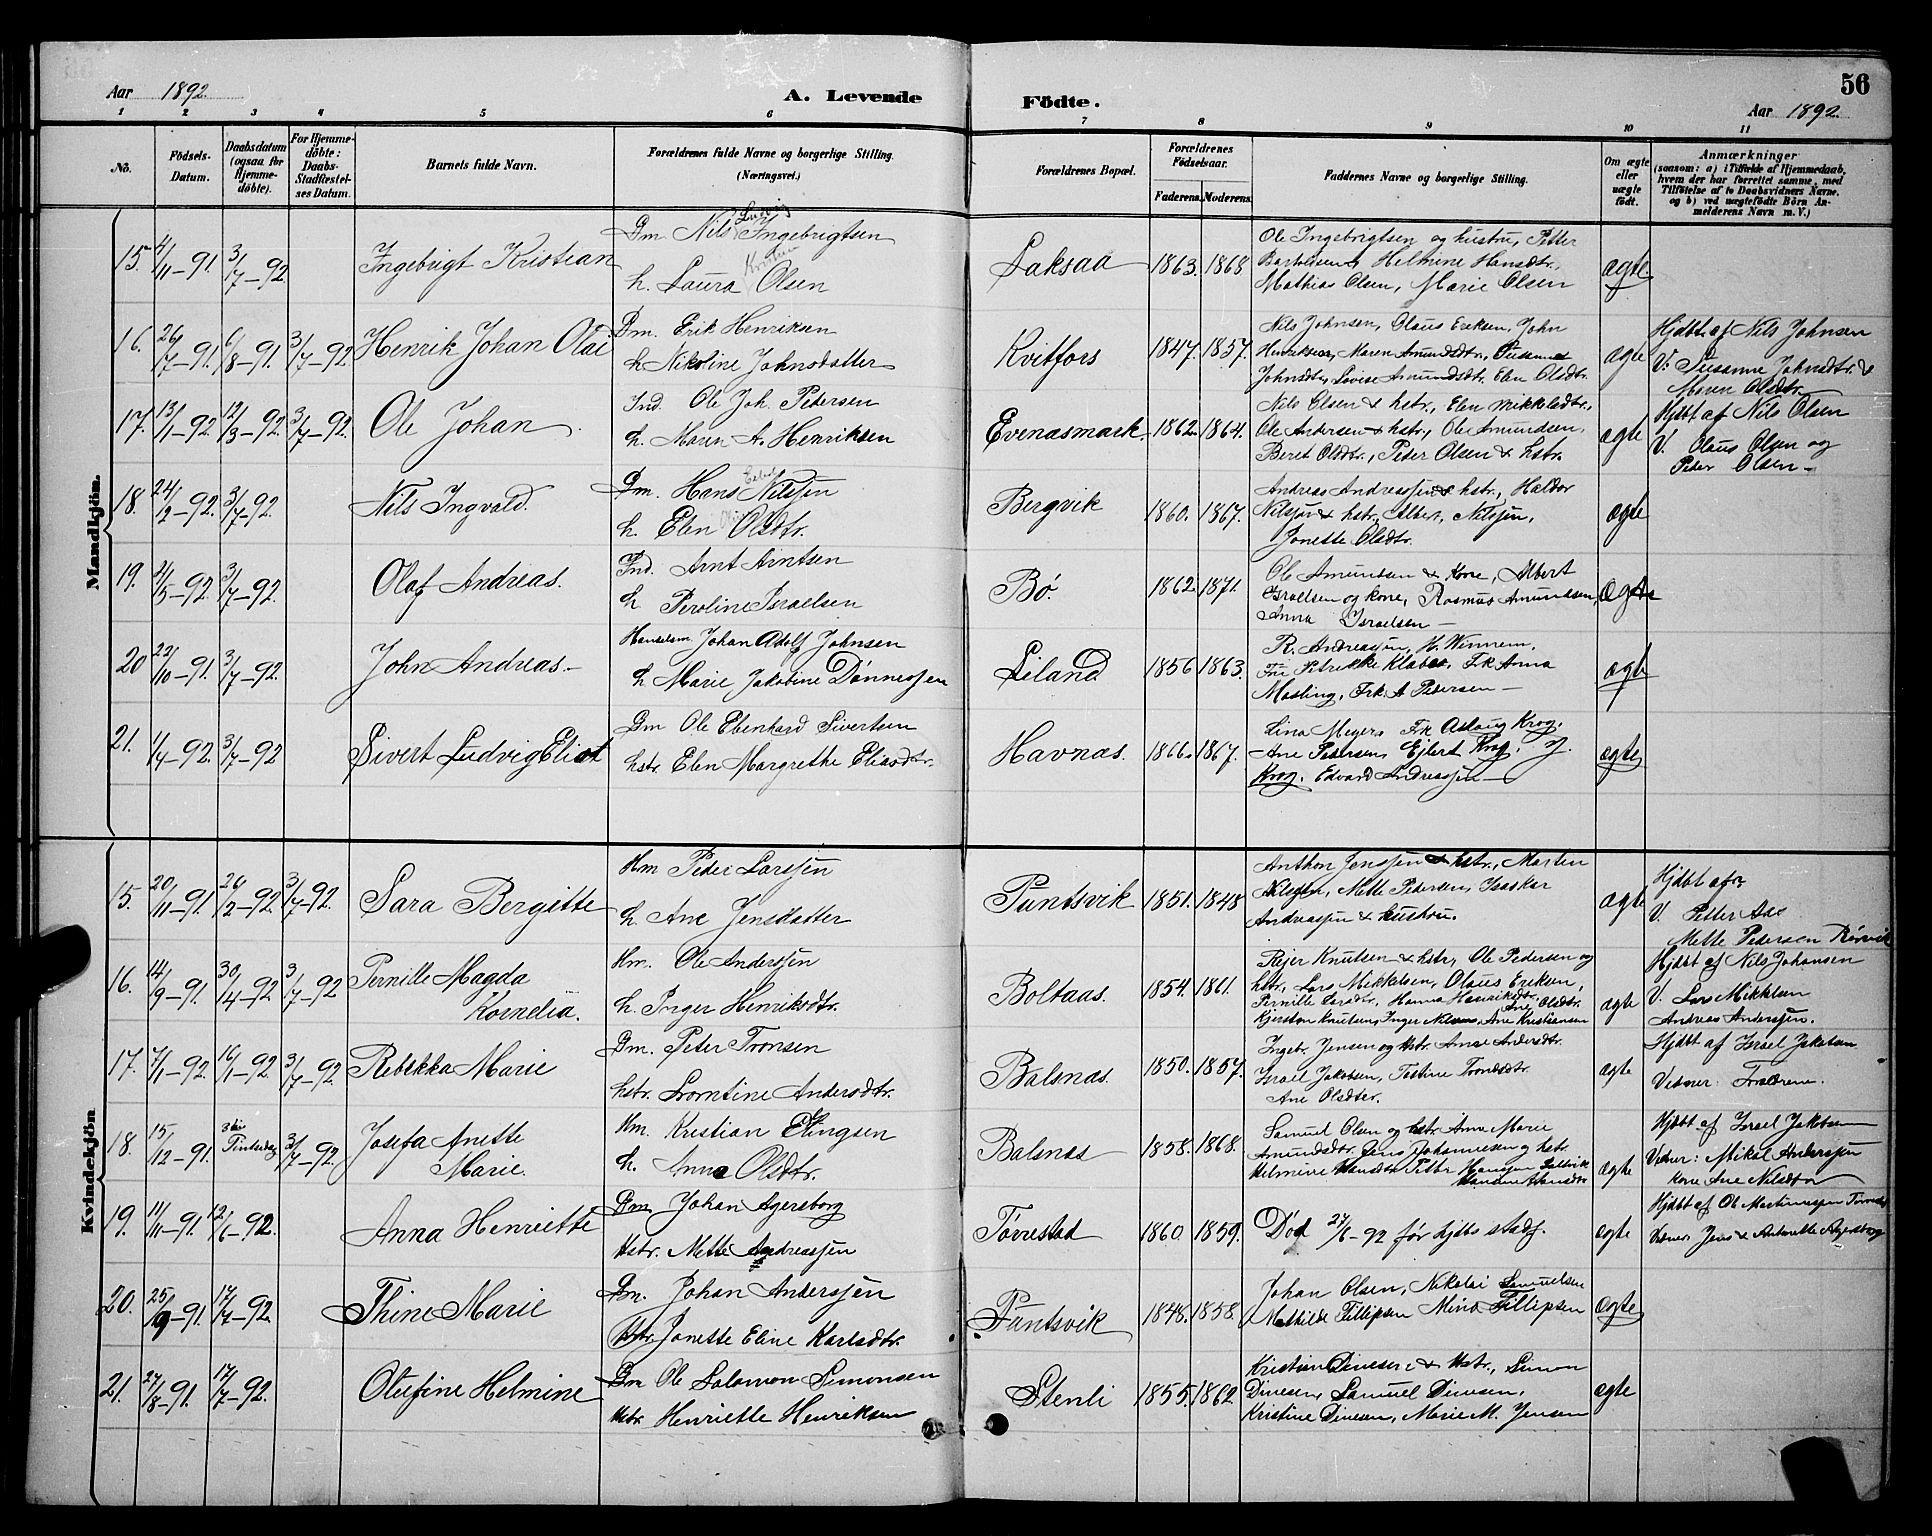 56
Aar 1892. A. Levende Födte. Aar 1892.
1 2 3 4 5 6 7 8 9 10 11
No. Födsels-Datum. Daabsdatum (ogsaa for Hjemme-döbte). For Hjemme-döbte: Daabs-Stadfæstel-ses Datum. Barnets fulde Navn. Forældrenes fulde Navne og borgerlige Stilling. (Næringsvei.) Forældrenes Bopæl. Forældrenes Födselsaar. Faderens. Moderens. Faddernes Navne og borgerlige Stilling. Om ægte eller uægte födt. Anmærkninger (saasom: a) i Tilfælde af Hjemmedaab, hvem der har forrettet samme, med Tilföielse af to Daabsvidners Navne, og b) ved uægtefödte Börn An-melderens Navn m. V.)
Mandkjön.
15. 4/11-91. 3/7-92 Ingebrigt Kristian
Gm. Nils Ludvig Ingebrigtsen
h. Laura Olsen
Laksaa 1863. 1868
Ole Ingebrigtsen og hustru, Petter
Helmine Hansdtr.
Mathias Olsen, Marie Olsen
ægte
16. 26/7-91. 6/8-91. 3/7-92. Henrik Johan Olai
Gm. Erik Henriksen
h Nikoline Johnsdatter
Kvitfors 1847. 1857.
Nils Johnsen, Olaus Eriksen, John
Henriksen, Maren Amundsdtr, Susanna
Johnsdtr, Lovise Amundsdtr. Elen Olsdtr.
ægte
Hjdbt af Nils Johnsen
V. Susanne Johnsdtr. &
Maren Olsdtr.
17. 13/1-92. 12/3-92. 3/7-92. Ole Johan
Ind. Ole Joh. Pedersen
h. Maren A. Henriksen
Evenasmark 1862. 1864.
Nils Olsen & hstr., Elen Mikkelsdtr.,
Ole Andersen & hstr., Ole Amundsen,
Beret Olsdtr., Peder Olsen & hstr.
ægte
Hjdbt af Nils Olsen
V. Olaus Olsen og
Peder Olsen
18. 24/2-92. 3/7-92. Nils Ingvald.
Gm. Hans Nilssen
h. Elen Olsdtr.
Bergvik 1860. 1867.
Andreas Andreassen & hstr., Haldor
Nilssen & hstr., Albert Nilssen,
Jonette Olsdtr.
ægte
19. 21/5-92. 3/7-92. Olaf Andreas.
Ind. Arnt Arntsen
h Peroline Israelsen
Bø. 1862. 1871.
Ole Amundsen & kone, Albert
Israelsen og kone, Rasmus Amundsen,
Anna Israelsen
ægte
20 22/10-91. 3/7-92. John Andreas
Handelsm Johan Adolf Johnsen
h Marie Jakobine Dønnessen
Liland 1856 1863.
R. Andreassen, H. Winnem,
Fru Petrikke Klæboe, Frk Anna
Masling, Frk. A Pedersen
ægte
21. 1/4-92. 3/7-92 Sivert Ludvig Eliot
Gm Ole Edenhard Sivertsen
hstr. Elen Margrethe Eliasdtr.
Havnas. 1866. 1867.
Lina Meyer, Frk Aslaug Krog,
Ane Pedersen, Ejlert Krog, J.
Krog, Edvard Andreassen
ægte
Kvindekjön
15. 20/11-91. 26/2-92. 3/7-92. Sara Bergitte
Hm Peder Larssen
h. Ane Jensdatter
Puntsvik 1851. 1848
Anthon Jenssen & hstr., Martin
Mette Pedersen, Isaskar
Andreassen & hustru.
ægte
Hjdbt af
V. Petter Aas
Mette Pedersen Rørvik
16. 14/9-91. 30/14-92 3/7-92 Pernille Magda
Kornelia.
Hm. Ole Anderssen
h. Inger Henriksdtr.
Boltaas. 1854. 1861.
Rejer Knutsen & hstr, Ole Pedersen og
hstr, Lars Mikkelsen, Olaus Eriksen,
Pernille Larsdtr, Hanna Henriksdtr, Ane Olsdtr.
Kjersten Knutsen, Inger Nilsen, Ane Kristiansen
ægte
Hjdbt af Nils Johansen
V. Lars Mikklsen
Andreas Anderssen.
17. 7/1-92. 16/1-92. 3/7-92 Rebekka Marie
Gm. Peter Tronsen
hstr. Lorntine Andersdtr.
Balsnas. 1850. 1857.
Ingebr. Jensen og hstr. Anne Andersdtr.
Israel Jakobsen, Tostine Tronsdtr.
Ane Olsdter.
ægte
Hjdbt af Israel Jakobsen
Vidner: Forældrene.
18. 15/12-91. 3die Pintsedag 3/7-92. Josefa Anette
Marie.
Hm. Kristian Elingsen
h. Anna Olsdtr.
Balsnas 1858. 1868.
Samuel Olsen og hstr Anna Marie
Amundsdtr, Jens Johannessen og hstr
Helmine Hansdtr, Petter Hanssen
Hansine Hansdtr
ægte
Hjdbt af Israel Jakobsen
Vidner: Mikal Anderssen
kone Ane Nilsdtr
19. 11/11-91. 12/6-92. Anna Henriette
Gm. Johan Agersborg
Hstr. Mette Andreassen
Tørrestad 1860. 1859.
Død 27/6-92 før hjdbs stadf.
ægte
Hjdbt af Ol. Martinussen Tørrestad
Vidner Jens & Antonette Agersborg
20. 25/9-91. 17/7-92. Thine Marie
Gm. Johan Anderssen
Hstr. Jonette Eline Karlsdtr.
Puntsvik 1848. 1858.
Johan Olsen, Nikolai Samuelsen
Mathilde Fillipsen Mina Fillipsen
ægte
21. 27/8-91. 17/7-92. Olufine Helmine
Gm Ole Salomon Simonsen
Hstr. Henriette Henriksen
Stenli 1855. 1862.
Kristian Dinesen & Hstr., Simon
Dinesen, Samuel Dinesen,
Kristine Dinesen, Marie M. Jensen
ægte